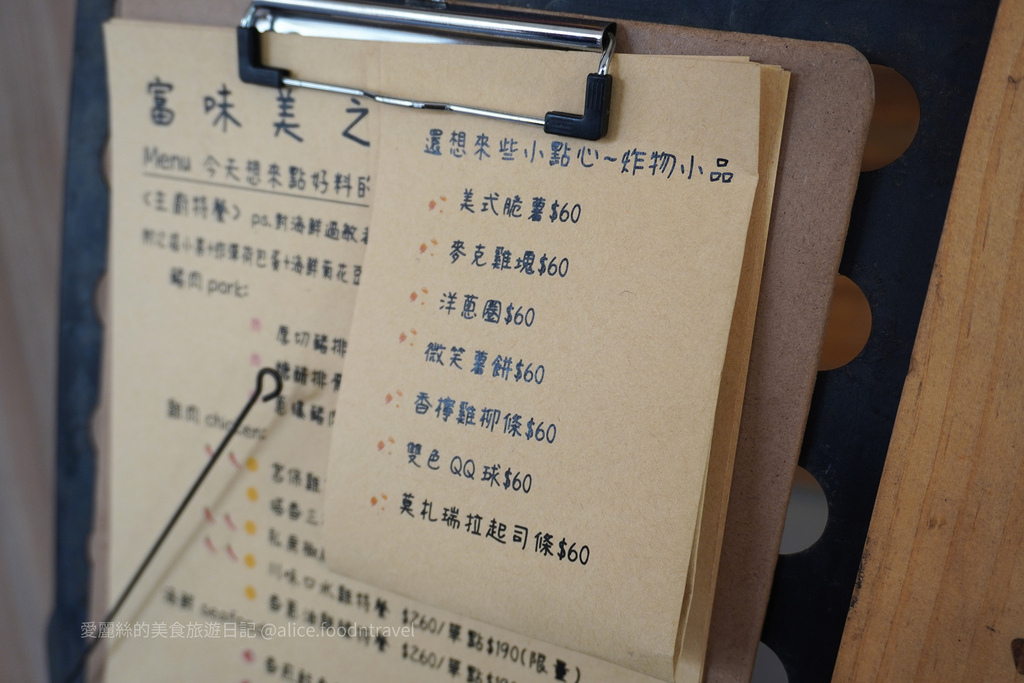 富味美之
Menu 今天想來點好料的
<主廚特餐> ps.對海鮮過敏
豬肉 pork:
厚切豬排
糖醋排骨
雞肉 chicken:
宮保雞
川味口水雞特餐 $260/單點$190(限量)
$260/單點$190
海鮮
還想來些小點心~炸物小品
美式脆薯$60
麥克雞塊$60
洋蔥圈$60
微笑薯餅$60
香檸雞柳條$60
雙色QQ球$60
莫札瑞拉起司條$60
愛麗絲的美食旅遊日記 @alice.foodntravel